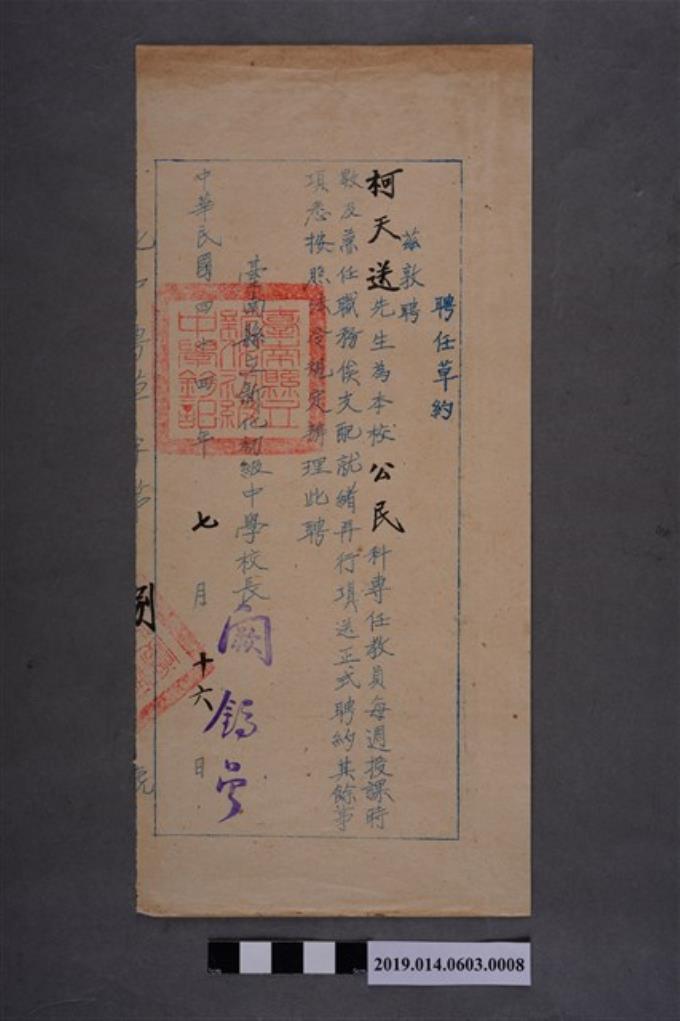 聘任草約
茲敦聘
柯天送先生為本校公民科專任教員每週授課時
數及兼任職務俟支配就緒再行項送正式聘約其餘事
項悉按照法令規定辦理此聘
臺南縣立新化初級中學校長
中華民國四十四年七月十六日
捌
號
臺南縣立
新化初級
中學鈐記
2019.014.0603.0008